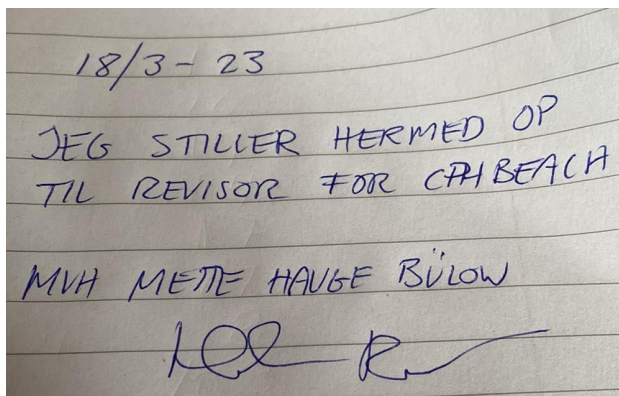 18/3 - 23
JEG STILLER HERMED OP
TIL REVISOR FOR CPHBEACH
MVH METTE HAUGE BÜLOW